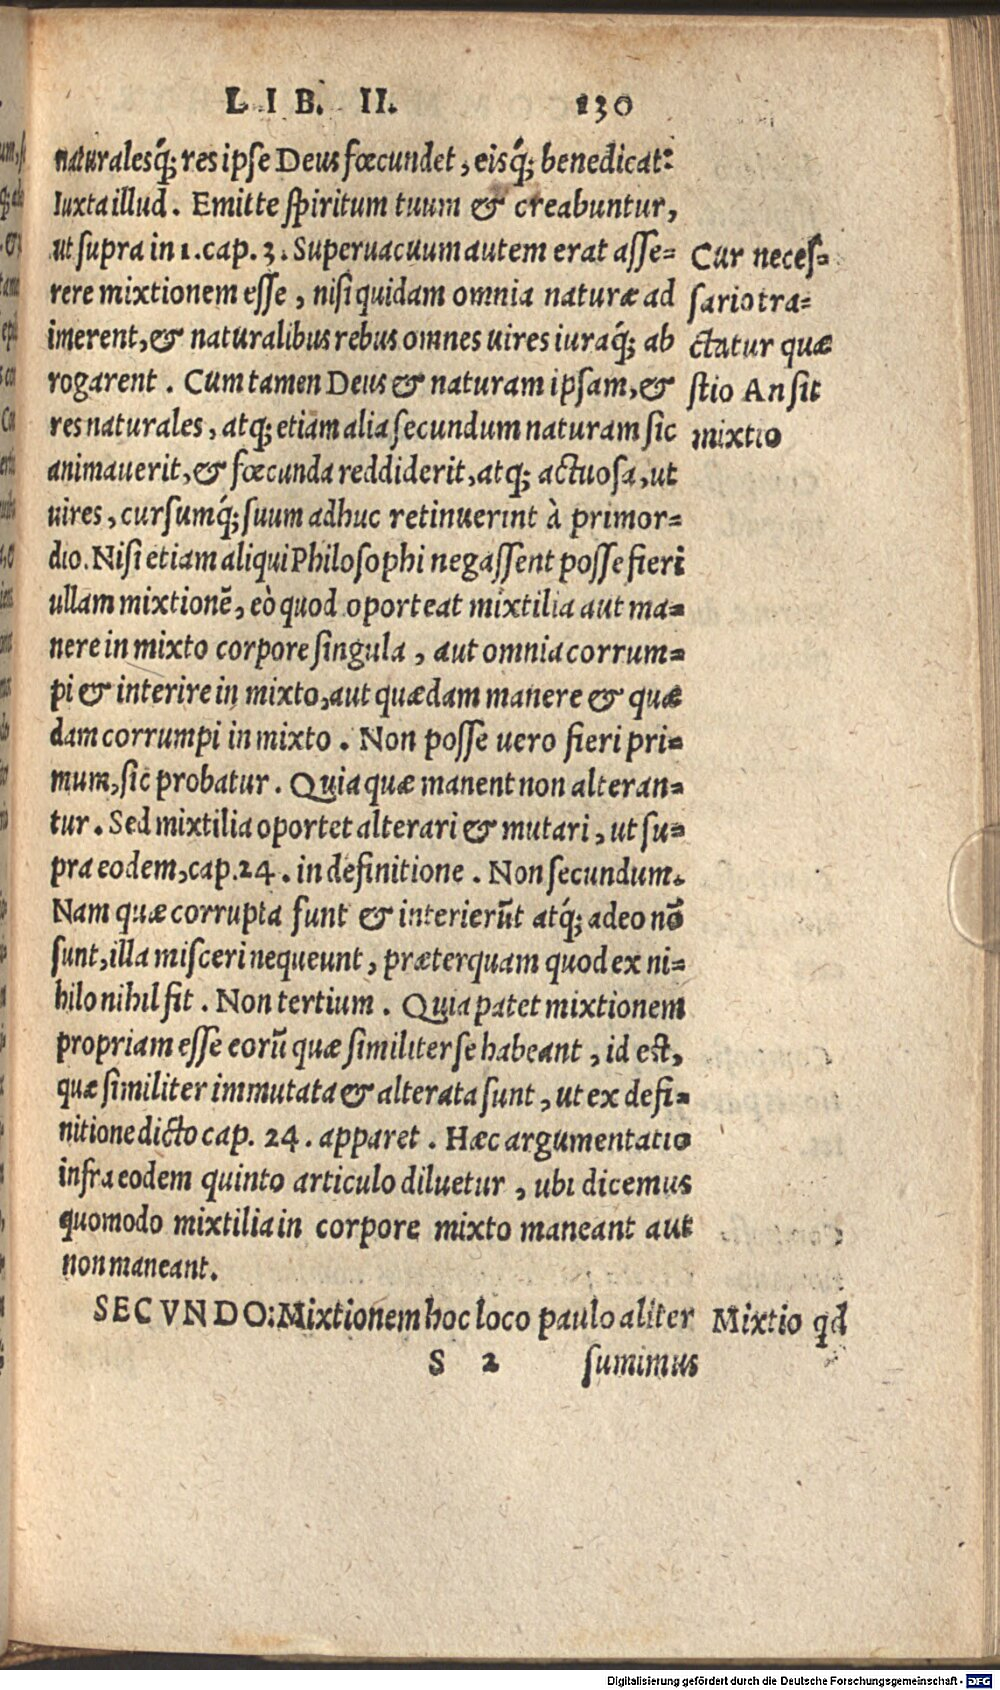 LIB. II. 130
naturalesq́; res ipse Deus fœcundet, eisq́; benedicat:
Iuxta illud. Emitte spiritum tuum & creabuntur,
ut supra in 1. cap. 3. Superuacuum autem erat asse-
rere mixtionem esse, nisi quidam omnia naturæ ad
imerent, & naturalibus rebus omnes uires iuraq́; ab
rogarent. Cum tamen Deus & naturam ipsam, &
res naturales, atq; etiam alia secundum naturam sic
animauerit, & fœcunda reddiderit, atq; actuosa, ut
uires, cursumq́; suum adhuc retinuerint à primor-
dio. Nisi etiam aliqui Philosophi negassent posse fieri
ullam mixtionẽ, eò quod oporteat mixtilia aut ma-
nere in mixto corpore singula, aut omnia corrum-
pi & interire in mixto, aut quædam manere & quæ
dam corrumpi in mixto. Non posse uero fieri pri-
mum, sic probatur. Quia quæ manent non alteran-
tur. Sed mixtilia oportet alterari & mutari, ut su-
pra eodem, cap. 24. in definitione. Non secundum.
Nam quæ corrupta sunt & interierũt atq́; adeo nõ
sunt, illa misceri nequeunt, præterquam quod ex ni-
hilo nihil fit. Non tertium. Quia patet mixtionem
propriam esse eorũ quæ similiter se habeant, id est,
quæ similiter immutata & alterata sunt, ut ex defi-
nitione dicto cap. 24. apparet. Hæc argumentatio
infra eodem quinto articulo diluetur, ubi dicemus
quomodo mixtilia in corpore mixto maneant aut
non maneant.
SECVNDO: Mixtionem hoc loco paulo aliter
S 2 sumimus
Cur neces-
sario tra-
ctatur quæ
stio An sit
mixtio
Mixtio qd
Digitalisierung gefördert durch die Deutsche Forschungsgemeinschaft - DFG